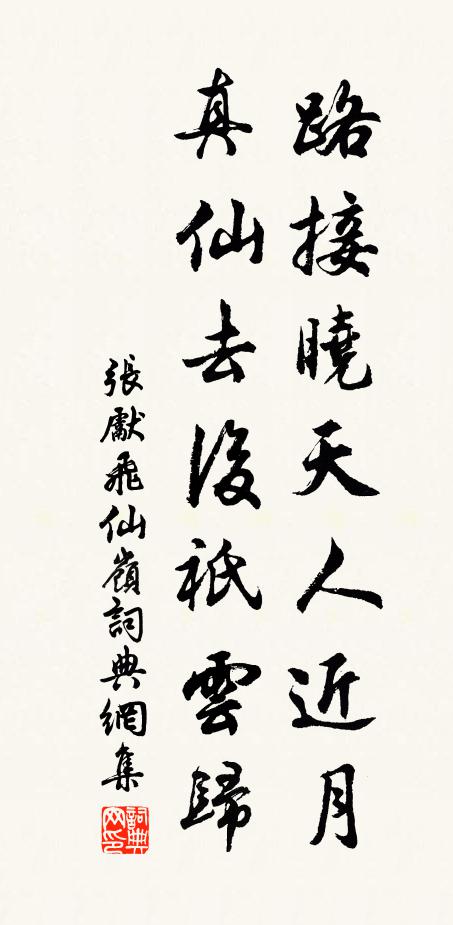 路接曉天人近月
真仙去後祇雲歸
張獻飛仙嶺詞典網集
詞典網印